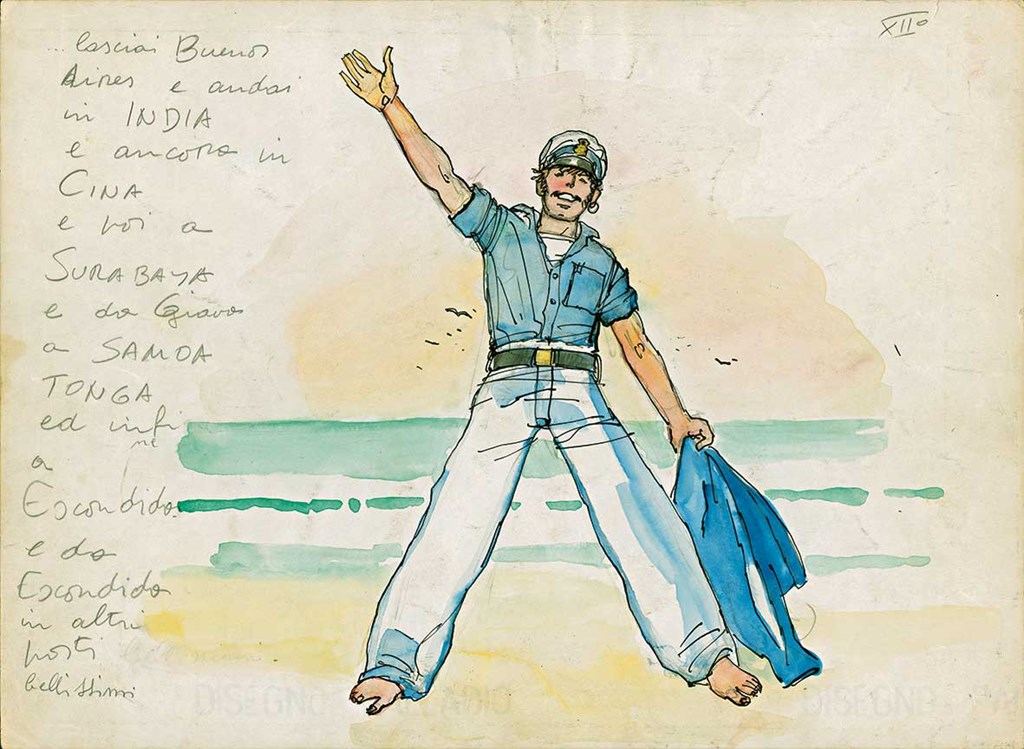 XIIº
... lasciai Buenos
Aires e andai
in INDIA
e ancora in
CINA
e poi a
SURABAYA
e da Giava
a SAMOA
TONGA
ed infi
ne
a
Escondida
e da
Escondida
in altri
posti
bellissimi
DISEGNO
DISEGNO